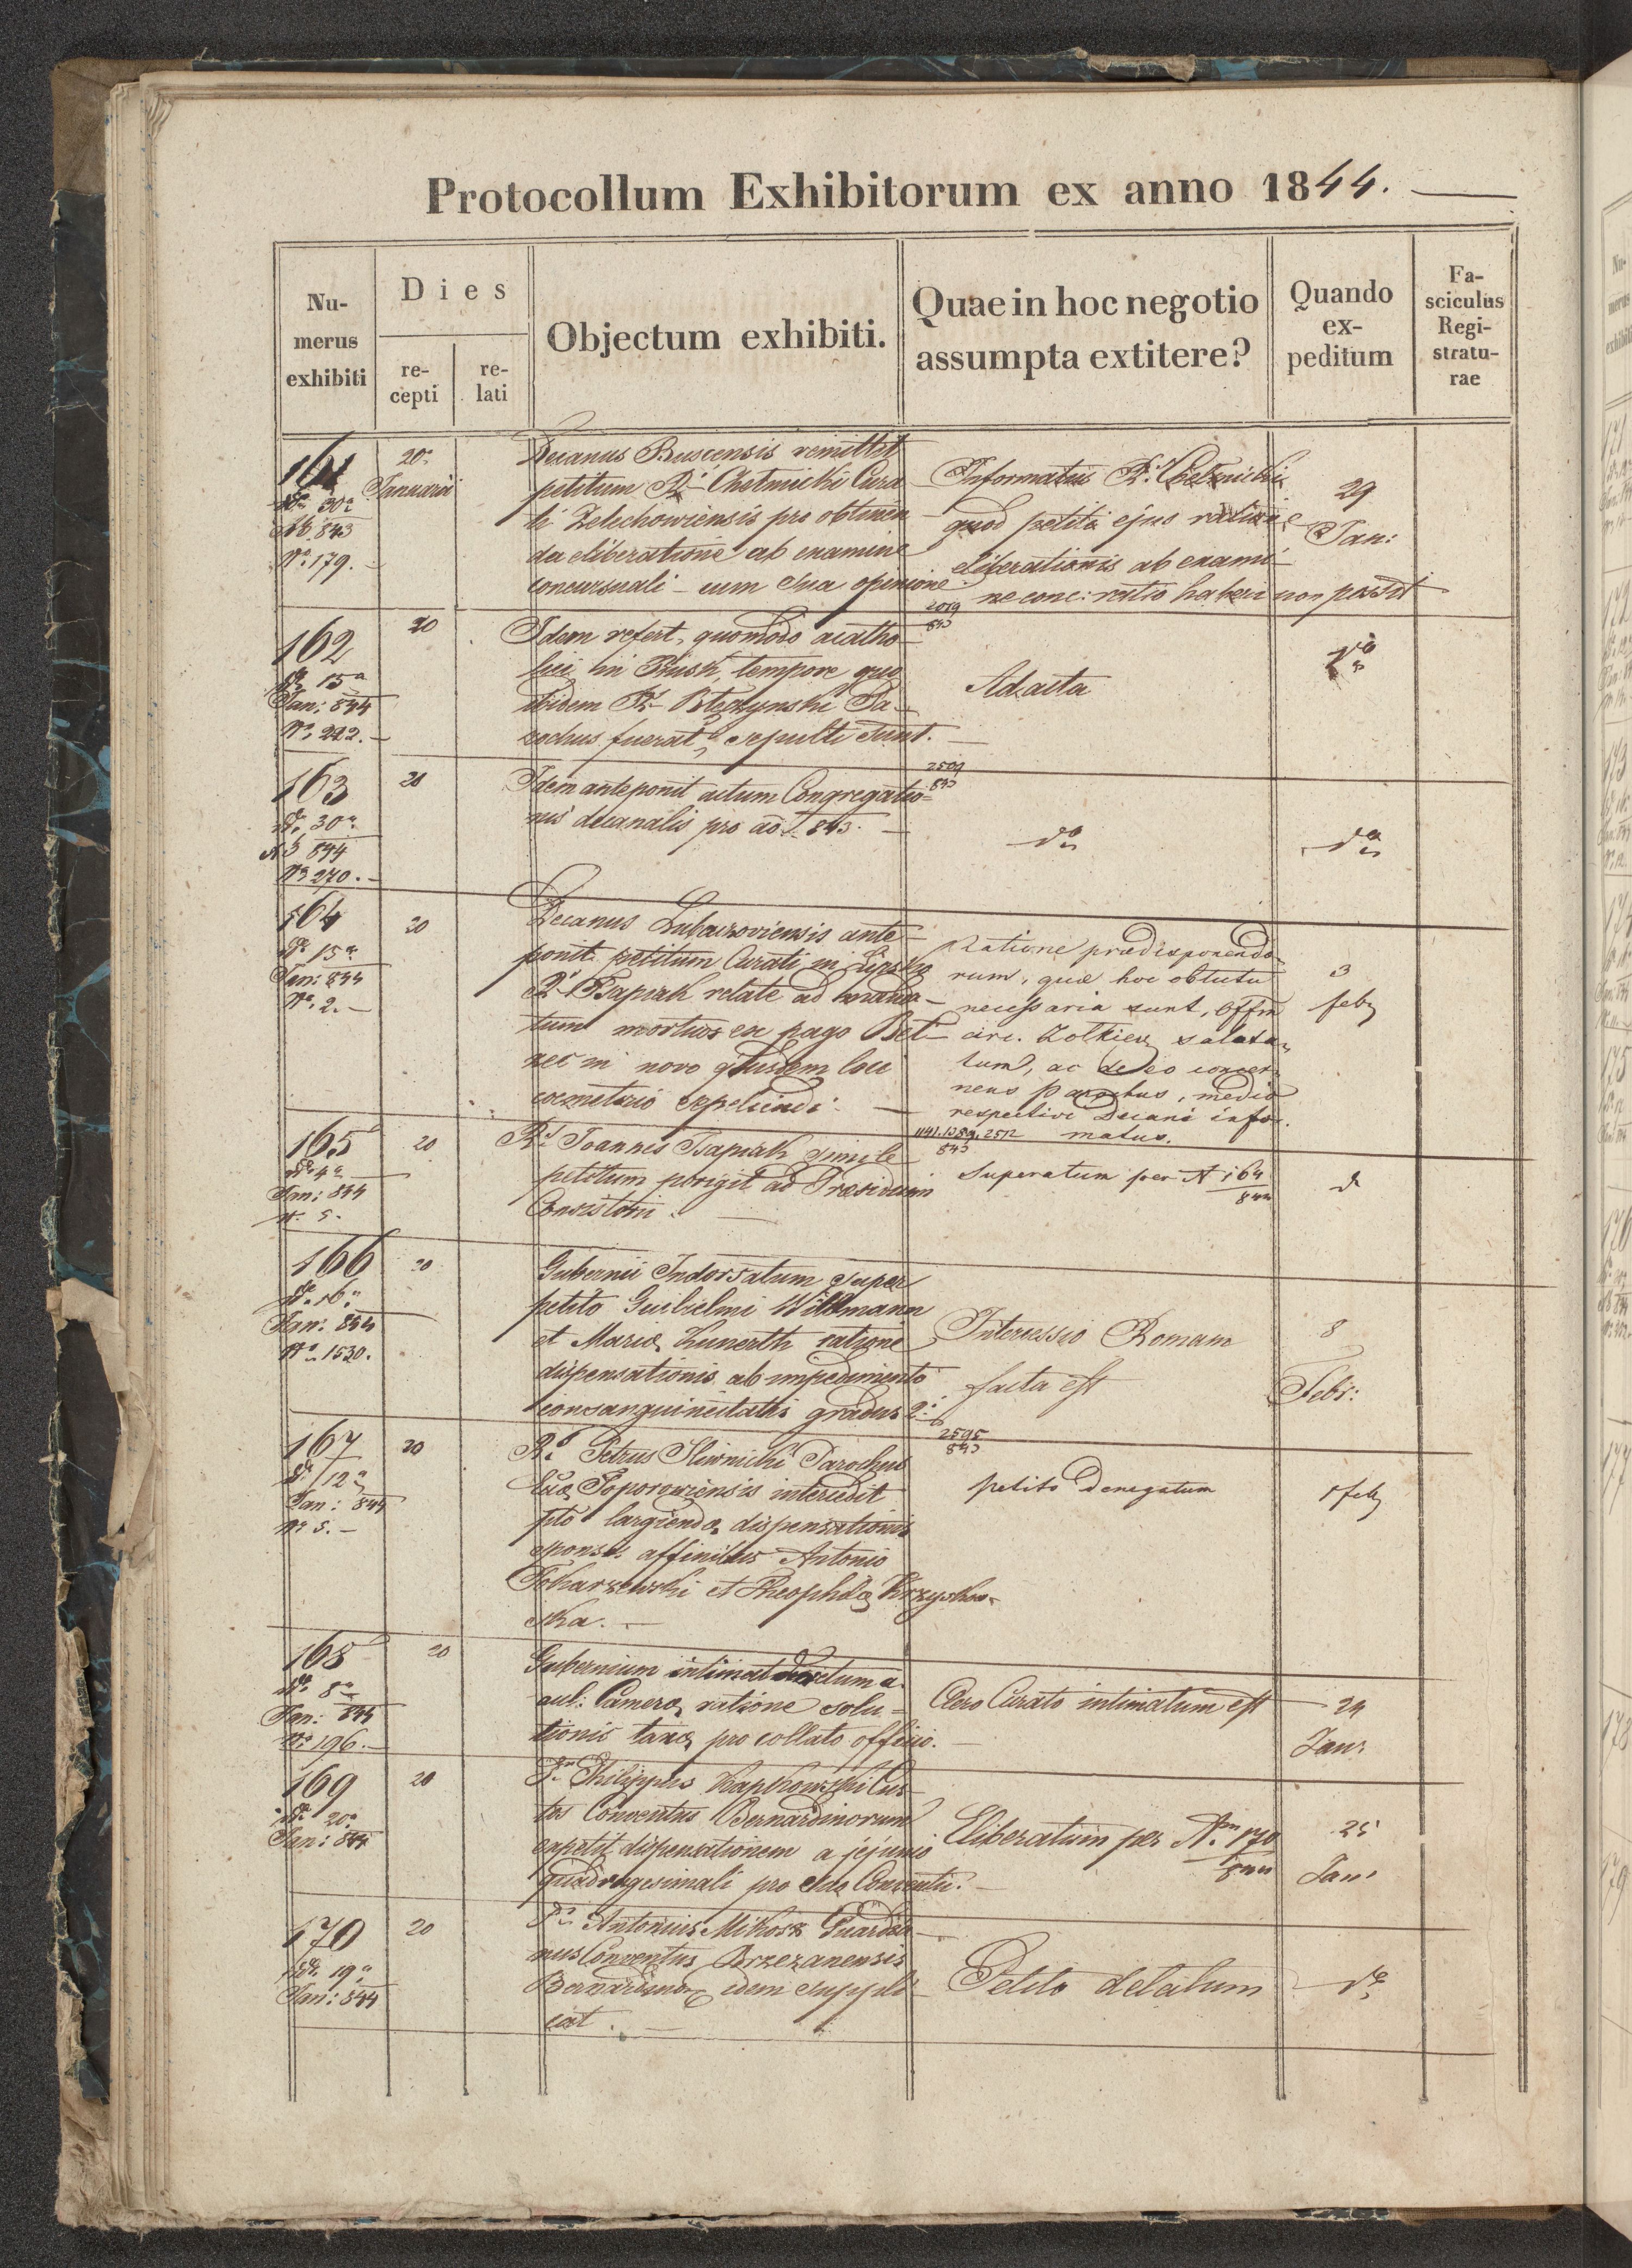 Protocollum Exhibitorum ex anno 1844.
Nu-
merus
exhibiti
Dies
re-
cepti
re-
lati
Objectum exhibiti.
Quae in hoc negotio
assumpta extitere?
Quando
ex-
peditum
Fa-
sciculus
Regi-
stratu-
rae
161
30
843
No. 179.
20
Januarii
Decanus Buscensis remittit
petitum Chelmicki Cura
ti Zelechowiensis pro obtinen
da eliberatione ab examine
concursuali - cum sua opinione
Informatus
quod petiti ejus ratione
eliberationis ab exami
ne conc: ratio haberi non possit
29
Jan:
162
15
Jan: 844
No. 222.
20
Idem refert, quomodo acatho
lici in Busk, tempore quo
ibidem Pa
rochus fuerat, sepulti sunt.
2019
843
Ad acta
do
163
30
844
No 270.
20
Idem anteponit actum Congregatio
nis decanalis pro ao 843.
2501
843
do
do
164
15
Jan: 844
No. 2.
20
Decanus Lubaczoviensis ante
ponit petitum Curati in Lipsko
Psapirk relate ad
tum mortuos ex pago Bel
zec in novo ejusdem loci
coemeterio sepeliendi.
Ratione praedisponendo
rum, quae hoc obtutu
necessaria sunt, offm
circ. Zolkiew
tum, ac de eo concer
nens Parochus, medio
respectivi Decani infor
matus.
3
feb
165
4
Jan: 844
N. 5.
20
Joannes Psapirk simile
petitum porigit ad Praesidium
Consistorii.
1141. 1389. 2512
843
Superatum per N 164
844
d
166
16
Jan: 844
No. 1530.
20
Gubernii Indorsatum super
petito Guilielmi Wittmann
et Mariae Kunerth ratione
dispensationis ab impedimento
consanguineitatis gradus 2
Intercessio Romam
facta est
8
Febr:
167
12
Jan: 844
No 5.
20
Petrus Sliwnicki Parochus
Toporoviensis intercedit
pto largienda dispensationis
sponsis affinibus Antonio
Tokarzewski et Theophila Krzyskow
ska.
2595
843
petito denegatum
1 feb
168
8
Jan: 844
No 196.
20
Gubernium intimat Decretum a
aul: Camerae ratione solu
tionis taxae pro collato officio.
Clero Curato intimatum est
24
Jan:
169
20
Jan: 844
20
Philippus Kapkowski Cus
tos Conventus Bernardinorum
expetit dispensationem a jejunio
quadragesimali pro suo Conventu.
Eliberatum per Nm 170
844
25
Jan:
170
19
Jan: 844
20
Antonius Mikosz Guardia
nus Conventus Brzezanensis
Bernardinor idem suppli
cat.
Petito delatum
do